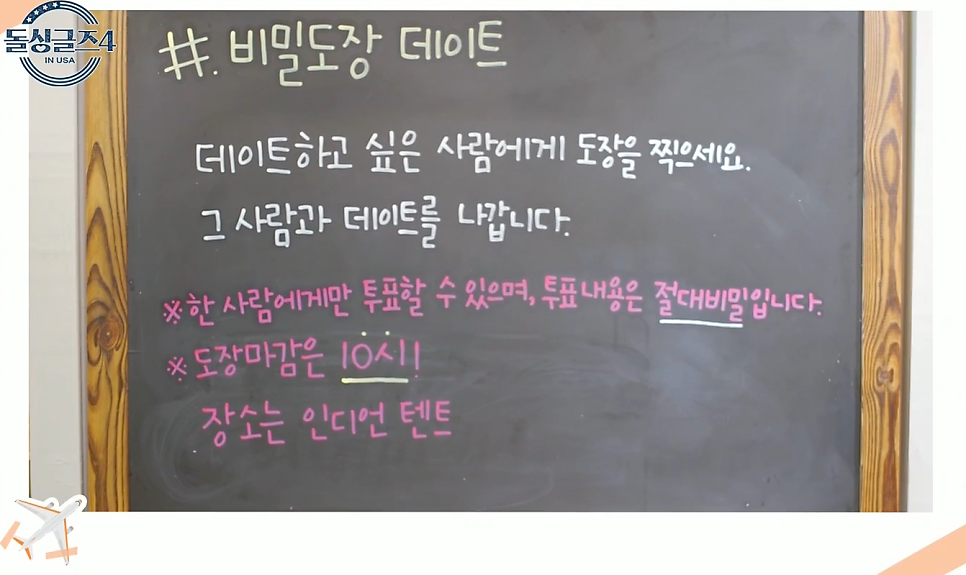 돌싱글즈4
IN USA
#. 비밀도장 데이트
데이트하고 싶은 사람에게 도장을 찍으세요.
그 사람과 데이트를 나갑니다.
※한 사람에게만 투표할 수 있으며, 투표내용은 절대비밀입니다.
※도장마감은 10시!
장소는 인디언 텐트